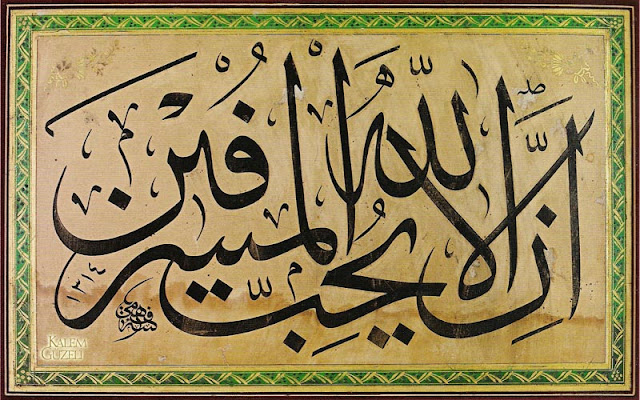 ان الله لا يحب المسرفين
١٣١٤
KALEM
GÜZELİ